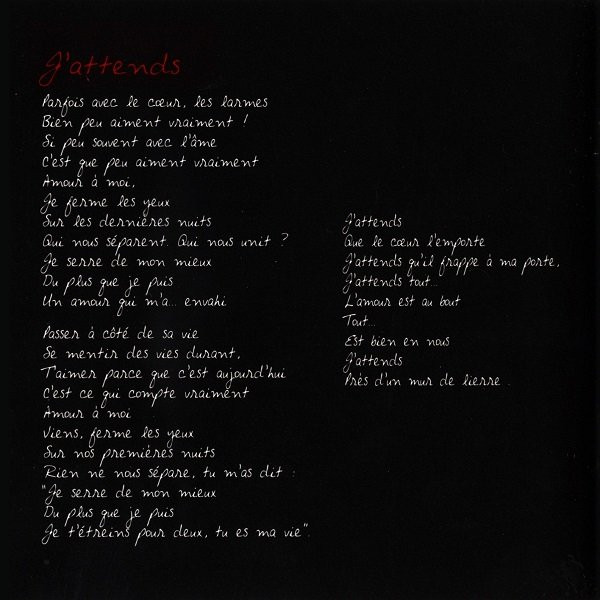 J'attends
Parfois avec le cœur, les larmes
Bien peu aiment vraiment !
Si peu souvent avec l'âme
C'est que peu aiment vraiment
Amour à moi,
Je ferme les yeux
Sur les dernières nuits
Qui nous séparent. Qui nous unit ?
Je serre de mon mieux
Du plus que je puis
Un amour qui m'a... envahi
Passer à côté de sa vie
Se mentir des vies durant,
T'aimer parce que c'est aujourd'hui
C'est ce qui compte vraiment
Amour à moi
Viens, ferme les yeux
Sur nos premières nuits
Rien ne nous sépare, tu m'as dit :
"Je serre de mon mieux
Du plus que je puis
Je t'étreins pour deux, tu es ma vie".
J'attends
Que le cœur l'emporte
J'attends qu'il frappe à ma porte,
J'attends tout...
L'amour est au bout
Tout...
Est bien en nous
J'attends
Près d'un mur de lierre .